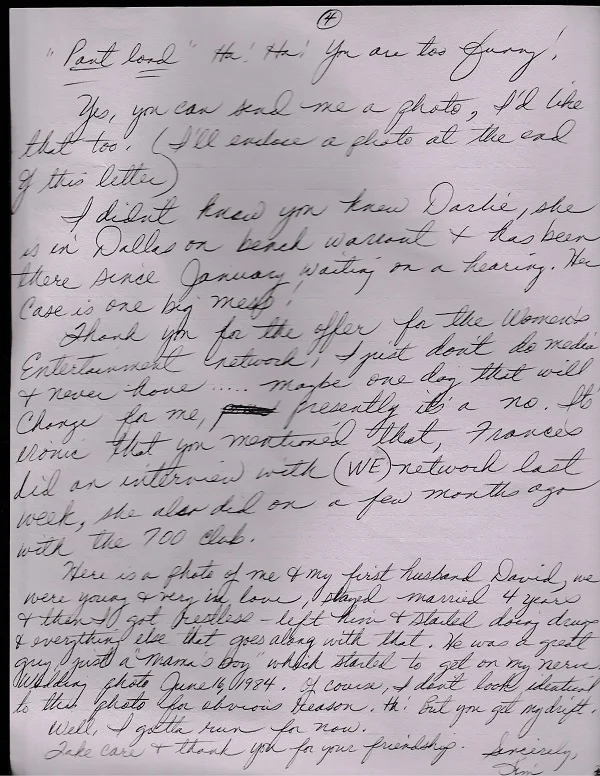 4
"Pant load" Ha! Ha! You are too funny!
Yes, you can send me a photo, I'd like
that too. (I'll enclose a photo at the end
of this letter)
I didn't know you knew Darlie, she
is in Dallas on bench warrant & has been
there since January waiting on a hearing. Her
case is one big mess!
Thank you for the offer for the Women's
Entertainment network, I just don't do media
& never have ..... maybe one day that will
change for me, presently it's a no. It's
ironic that you mentioned that, Frances
did an interview with (WE) network last
week, she also did on a few months ago
with the 700 Club.
Here is a photo of me & my first husband David, we
were young & very in love, stayed married 4 years
& then I got restless - left him & started doing drugs
& everything else that goes along with that. He was a great
guy just a "mama's boy" which started to get on my nerves.
Wedding photo June 16, 1984. Of course, I don't look identical
to this photo for obvious reason. Ha! But you get my drift.
Well, I gotta run for now.
Take care & thank you for your friendship. Sincerely,